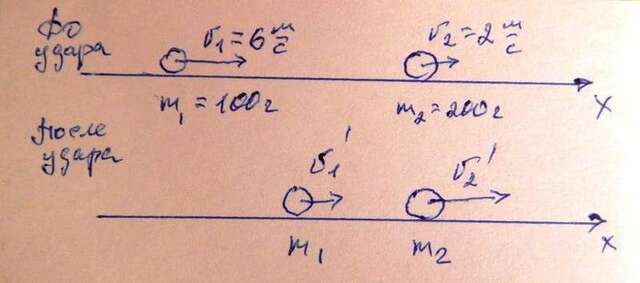 До
удара
υ₁ = 6 м/с
υ₂ = 2 м/с
m₁ = 100г
m₂ = 200г
x
После
удара
υ₁'
υ₂'
m₁
m₂
x